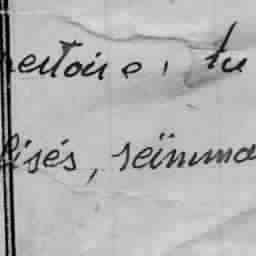 pertoire, tu
lisés, seïnma